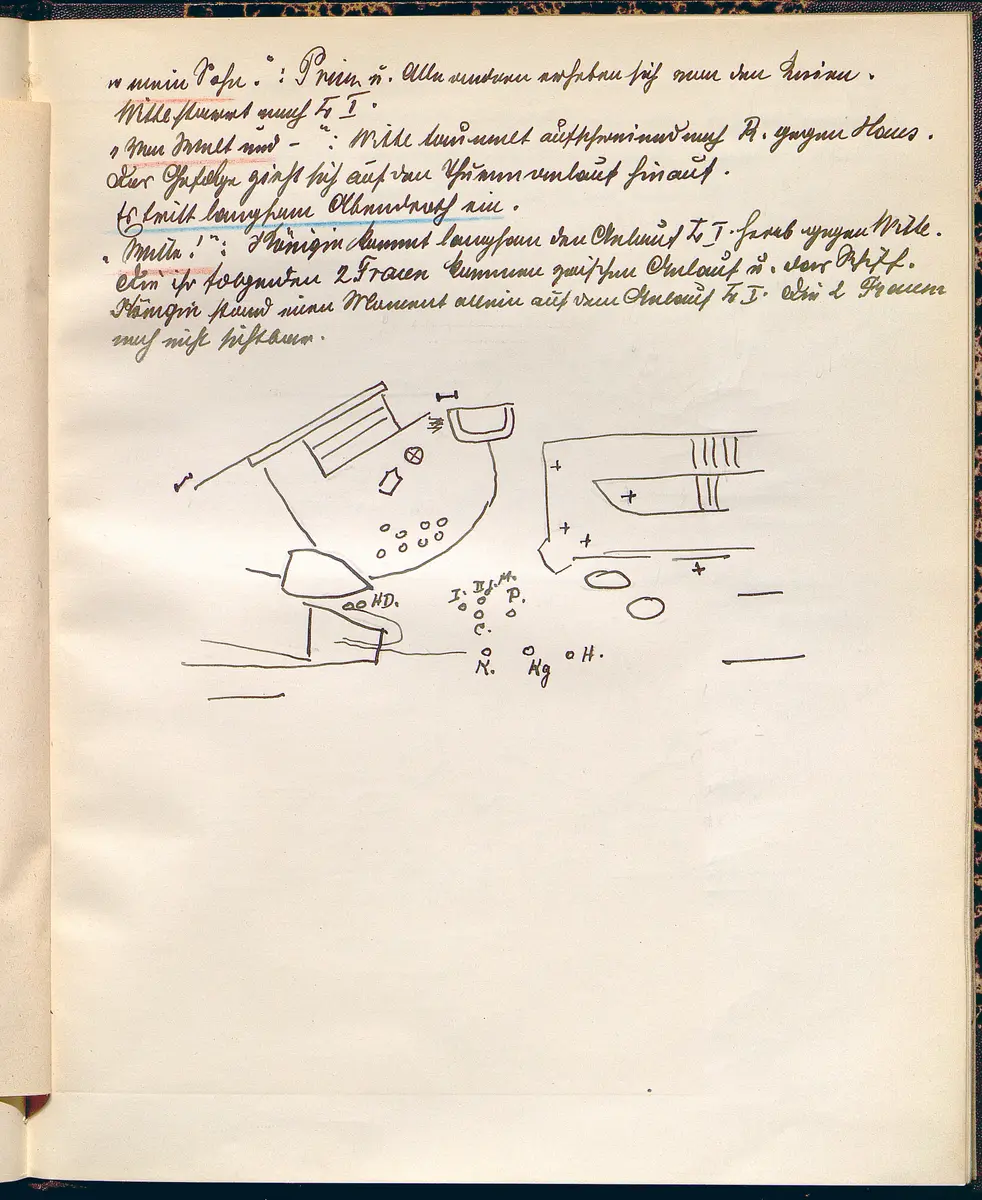 „mein Sohn.": Prinz u. Alle anderen erheben sich von den Knien.
Witte starrt nach L I.
„Von Welt und – ": Witte taumelt aufschreiend nach R. gegen Haus.
Das Gefolge zieht sich auf den Thurmanlauf hinauf.
Es tritt langsam Abendroth ein.
„Witte!": Königin kommt langsam den Anlauf L I. herab gegen Witte.
Die ihr folgenden 2 Frauen kommen zwischen Anlauf u. das Schiff.
Königin stand einen Moment allein auf dem Anlauf L I. Die 2 Frauen
noch nicht sichtbar.
I. II J. M.
HD. P.
C.
K. Kg H.